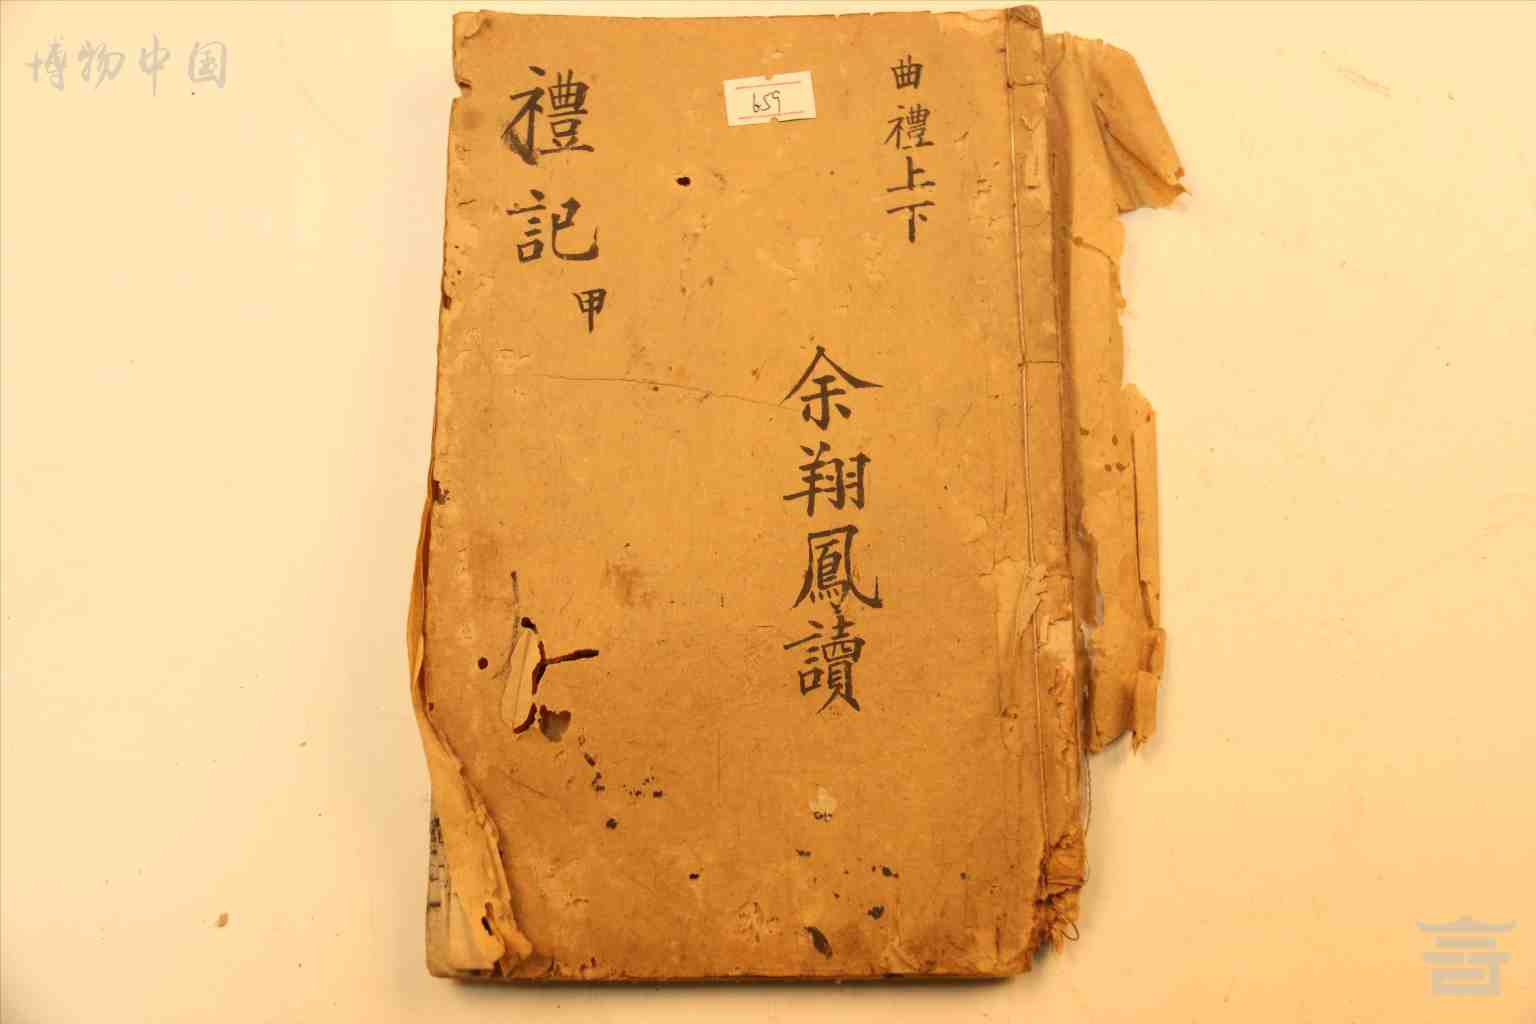 博物中国
禮記
甲
659
曲禮上下
余翔鳳讀